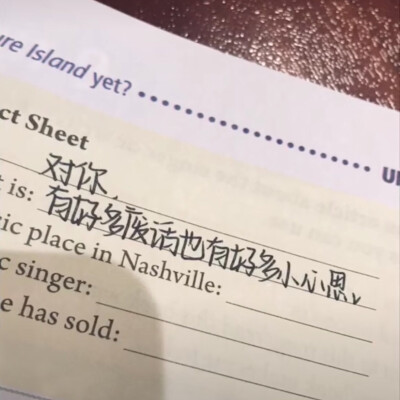 re Island yet?
ct Sheet
对你
is: 有好多废话也有好多小心思,
ic place in Nashville:
c singer:
e has sold: